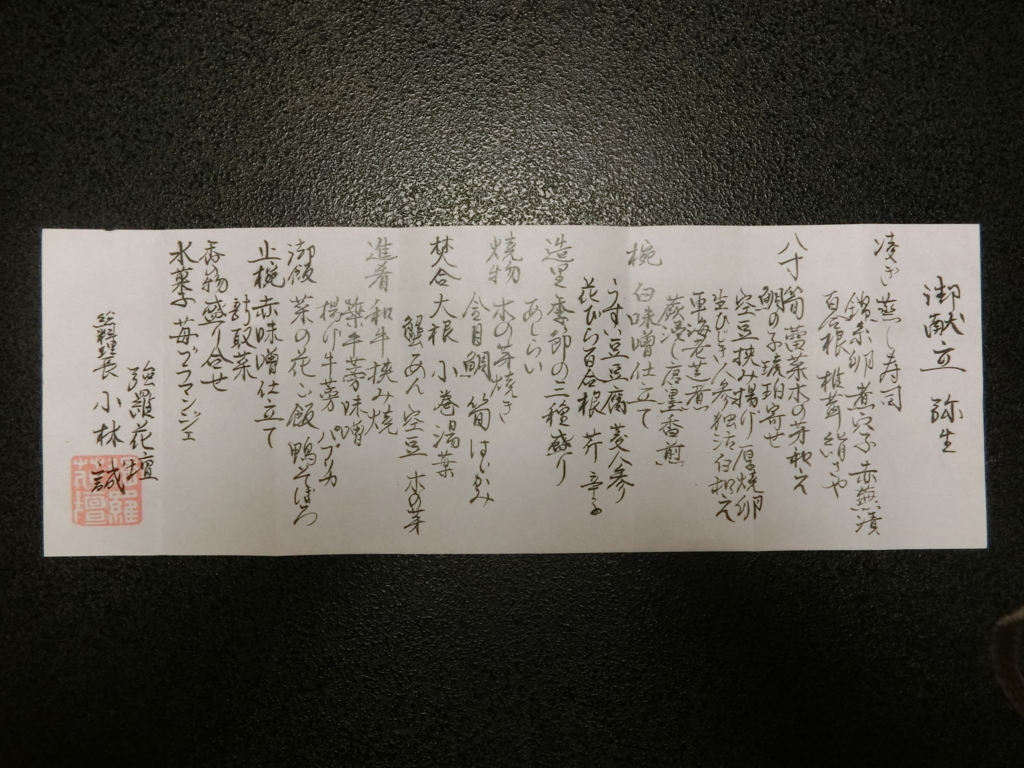 御献立 弥生
凌ぎ 蒸し寿司
錦糸卵 煮穴子 赤蕪漬
百合根 椎茸 絹さや
八寸 筍 蕾菜木の芽和え
鯛の子琥珀寄せ
空豆挟み揚げ 厚焼卵
生ひじき人参独活白和え
車海老芝煮
蕨浸し唐墨香煎
椀 白味噌仕立て
うすい豆豆腐 菱人参
花びら百合根 芹 辛子
造里 季節の三種盛り
あしらい
焼物 木の芽焼き
金目鯛 筍 はじかみ
焚合 大根 小巻湯葉
蟹あん 空豆 木の芽
進肴 和牛挟み焼
葉牛蒡味噌
揚げ牛蒡 パプリカ
御飯 菜の花ご飯 鴨そぼろ
止椀 赤味噌仕立て
香物 盛り合せ
水菓子 苺ブラマンジェ
強羅花壇
総料理長 小林 誠
強羅花壇